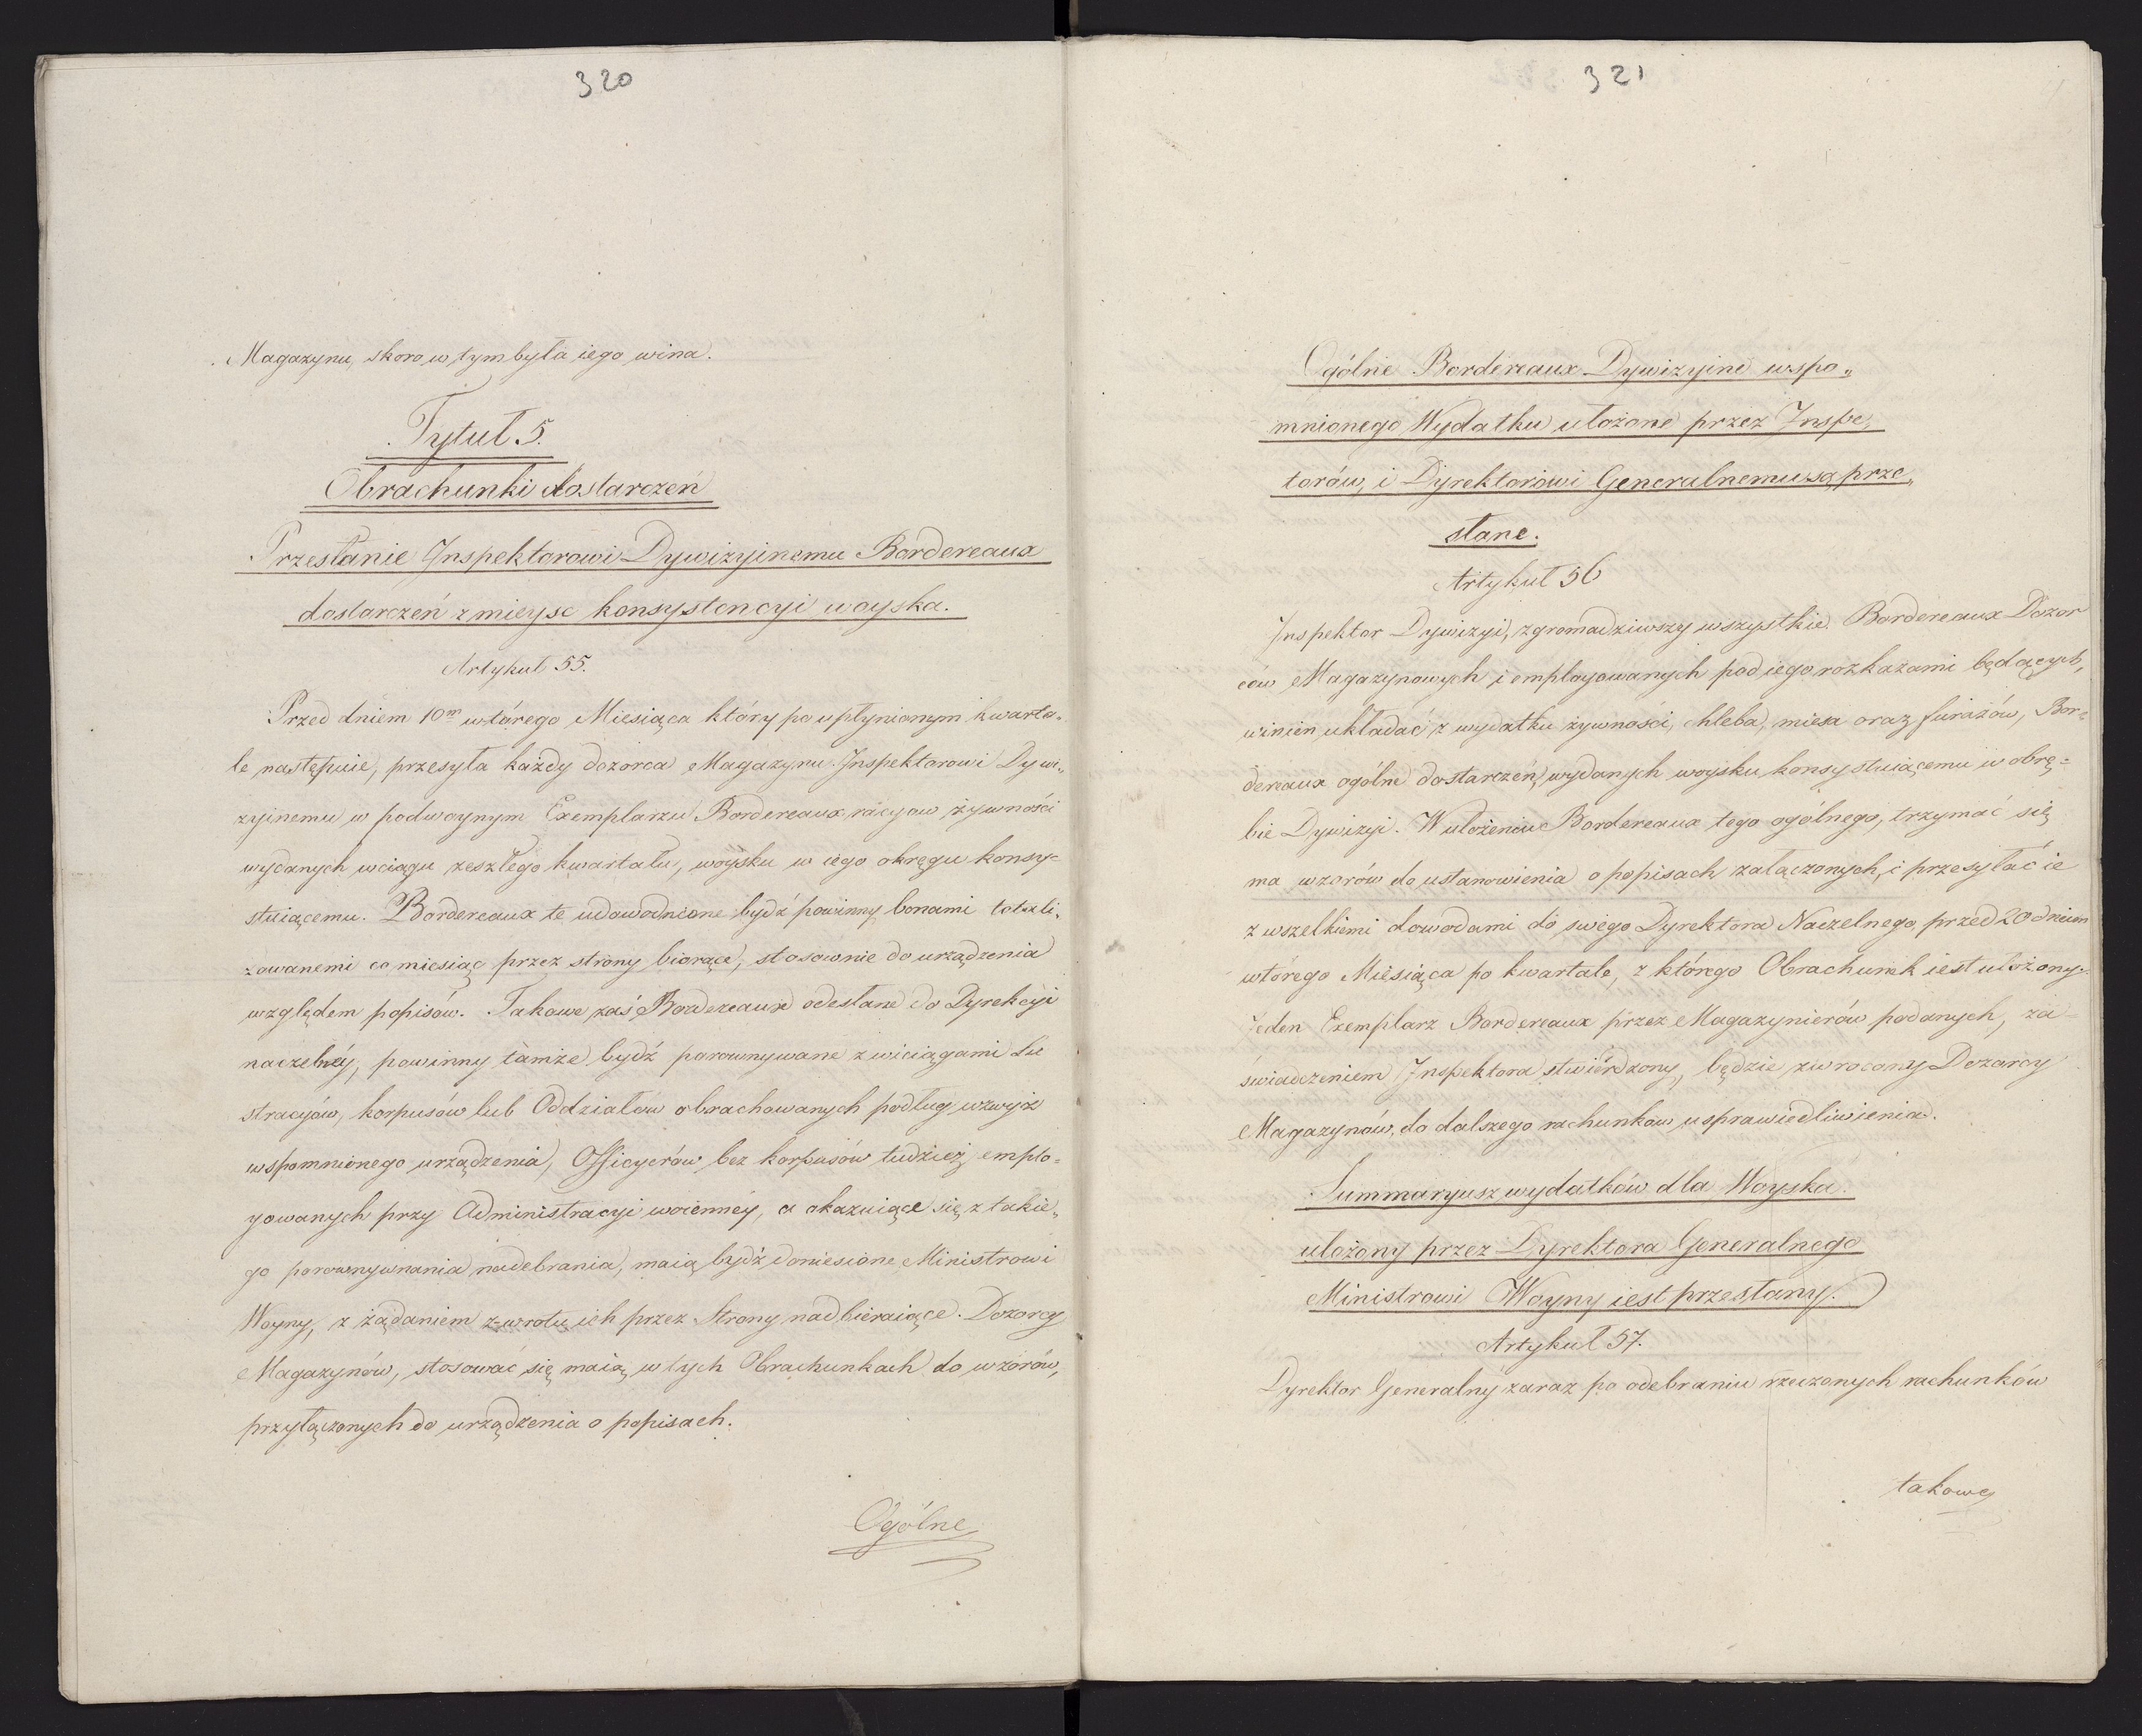 320
Magazynu, skoro w tym była iego wina.
Tytuł 5.
Obrachunki dostarczeń
Przesłanie Inspektorowi Dywizyinemu Bordereaux
dostarczeń z mieysc konsystencyi woyska.
Artykuł 55.
Przed dniem 10m wtórego Miesiąca który po upłynionym kwarta„
le następuie, przesyła każdy dozorca Magazynu Inspektorowi Dywi„
zyinemu w podwoynym Exemplarzu Bordereaux racyow żywności
wydanych wciągu zeszłego kwartału, woysku w iego okręgu konsy=
stuiącemu. Bordereaux te udowodnione bydź powinny bonami totali„
zowanemi co miesiąc przez strony biorące, stosownie do urządzenia
względem popisów. Takowe zaś Bordereaux odesłane do Dyrekcyi
naczelnéy, powinny tamże bydź porownywane z wiciągami Lu
stracyów, korpusów lub Oddziałów obrachowanych podług wzwyż
wspomnionego urządzenia, Officyerów bez korpusów tudzież emplo=
yowanych przy Administracyi woienney, a okazuiące się z takie„
go porownywnania nadebrania, maią bydź doniesione Ministrowi
Woyny, z żądaniem zwrotu ich przez Strony nadbieraiące. Dozorcy
Magazynów, stosować się maią w tych Obrachunkach do wzorów,
przyłączonych do urządzenia o popisach.
Ogólne
321
Ogólne Bordereaux Dywizyine wspo„
mnionego Wydatku ułożone przez Inspe„
torów, i Dyrektorowi Generalnemu są prze„
słane.
Artykuł 56
Inspektor Dywizyi, zgromadziwszy wszystkie Bordereaux Dozor
ców Magazynowych i employowanych pod iego rozkazami będących,
winien układać z wydatku żywności, chleba, miesa oraz furażów, Bor=
dereaux ogólne dostarczeń, wydanych woysku konsystuiącemu w obrę=
bie Dywizyi. W ułożeniu Bordereaux tego ogólnego, trzymać się
ma wzorów do ustanowienia o popisach załączonych, i przesyłać ie
z wszelkiemi dowodami do swego Dyrektora Naczelnego, przed 20 dniem
wtórego Miesiąca po kwartale, z którego Obrachunek iest ułożony.
Jeden Exemplarz Bordereaux przez Magazynierów podanych, za=
świadczeniem Inspektora stwierdzony, będzie zwrocony Dozorcy
Magazynów, do dalszego rachunkow usprawiedliwienia.
Summaryusz wydatków dla Woyska
ułożony przez Dyrektora Generalnego
Ministrowi Woyny iest przesłany.
Artykuł 57.
Dyrektor Generalny zaraz po odebraniu rzeczonych rachunków
takowe